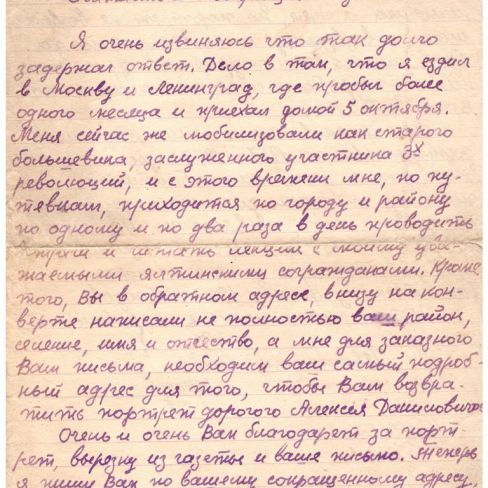 Я очень извиняюсь что так долго
задержал ответ. Дело в том, что я ездил
в Москву и Ленинград, где пробыл более
одного месяца и приехал домой 5 октября.
Меня сейчас же мобилизовали как старого
большевика, заслуженного участника 3х
революций, и с этого времени мне, по пу-
тевкам, приходится по городу и району
по одному и по два раза в день проводить
и читать лекции с моими ува-
жаемыми ялтинскими согражданами. Кроме
того, Вы в обратном адресе, внизу на кон-
верте написали не полностью ваш район,
селение, имя и отчество, а мне для заказного
Вам письма, необходим ваш самый подроб-
ный адрес для того, чтобы Вам возвра-
тить портрет дорогого Алексея Даниловича
Очень и очень Вам благодарен за порт-
рет, вырезку из газеты и ваше письмо. Теперь
я пишу Вам по вашему сокращенному адресу,